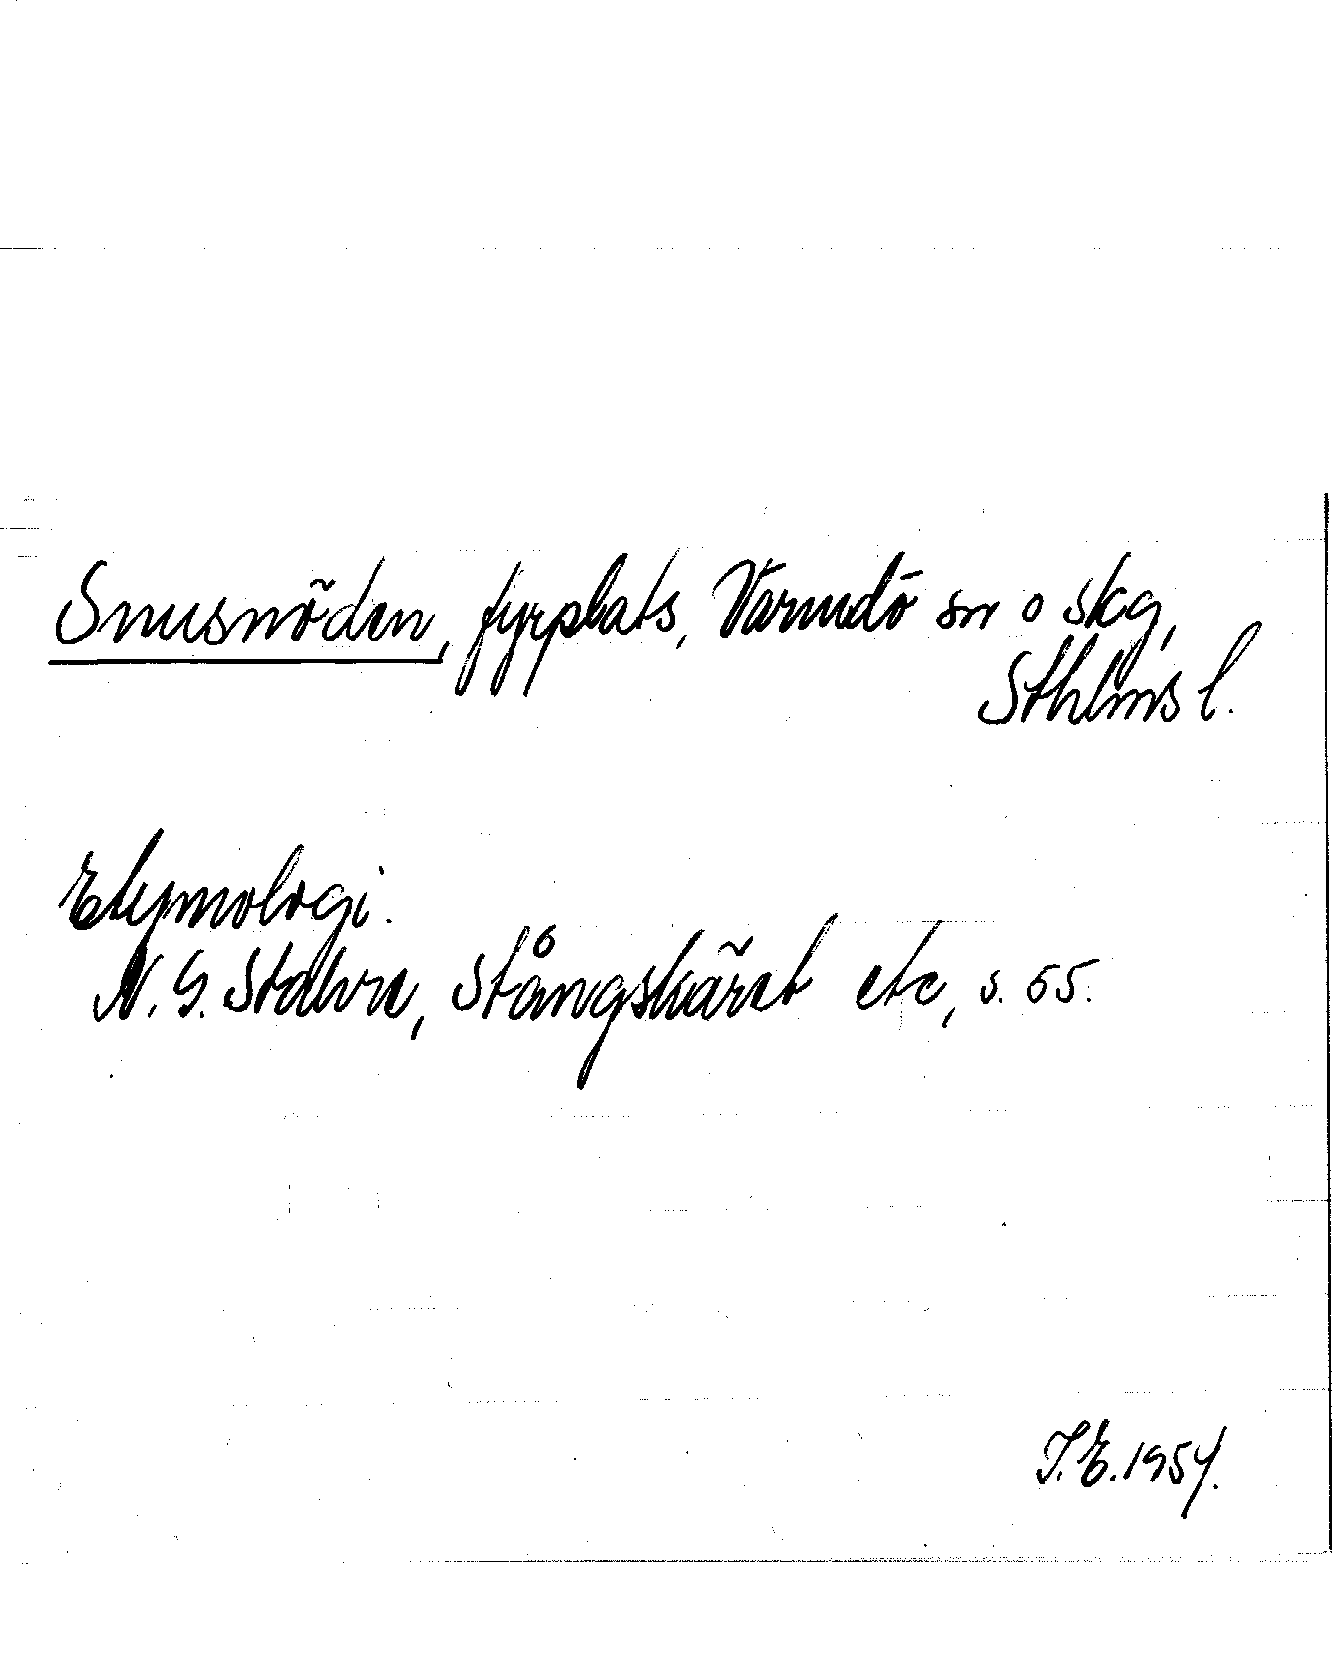 Snusnöden, fyrplats, Värmdö sn o skg,
Sthlms l.
Etymologi.
N. G. Stahre, Stångskäret etc, s. 55.
I. E. 1954.